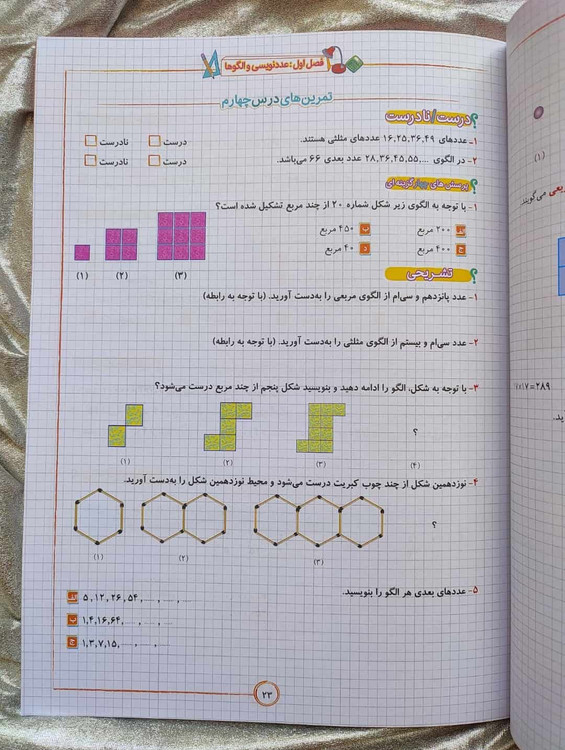 فصل اول: عددنویسی و الگوها
تمرین‌های درس چهارم
درست/نادرست
۱- عددهای ۱۶,۲۵,۳۶,۴۹ عددهای مثلثی هستند. درست نادرست
۲- در الگوی ...,۲۸,۳۶,۴۵,۵۵ عدد بعدی ۶۶ می‌باشد. درست نادرست
پرسش‌های چهارگزینه‌ای
۱- با توجه به الگوی زیر شکل شماره ۲۰ از چند مربع تشکیل شده است؟
الف ۲۰۰ مربع ب ۴۵۰ مربع
ج ۴۰۰ مربع د ۴۰ مربع
(۱) (۲) (۳)
تشریحی
۱- عدد پانزدهم و سی‌ام از الگوی مربعی را به‌دست آورید. (با توجه به رابطه)
۲- عدد سی‌ام و بیستم از الگوی مثلثی را به‌دست آورید. (با توجه به رابطه)
۳- با توجه به شکل، الگو را ادامه دهید و بنویسید شکل پنجم از چند مربع درست می‌شود؟
؟
(۱) (۲) (۳) (۴)
۴- نوزدهمین شکل از چند چوب کبریت درست می‌شود و محیط نوزدهمین شکل را به‌دست آورید.
؟
(۱) (۲) (۳)
۵- عددهای بعدی هر الگو را بنویسید.
الف ۵,۱۲,۲۶,۵۴,...,...,...
ب ۱,۴,۱۶,۶۴,...,...,...
ج ۱,۳,۷,۱۵,...,...,...
۲۳
(۱)
می‌گویند
=۲۸۹
ید.